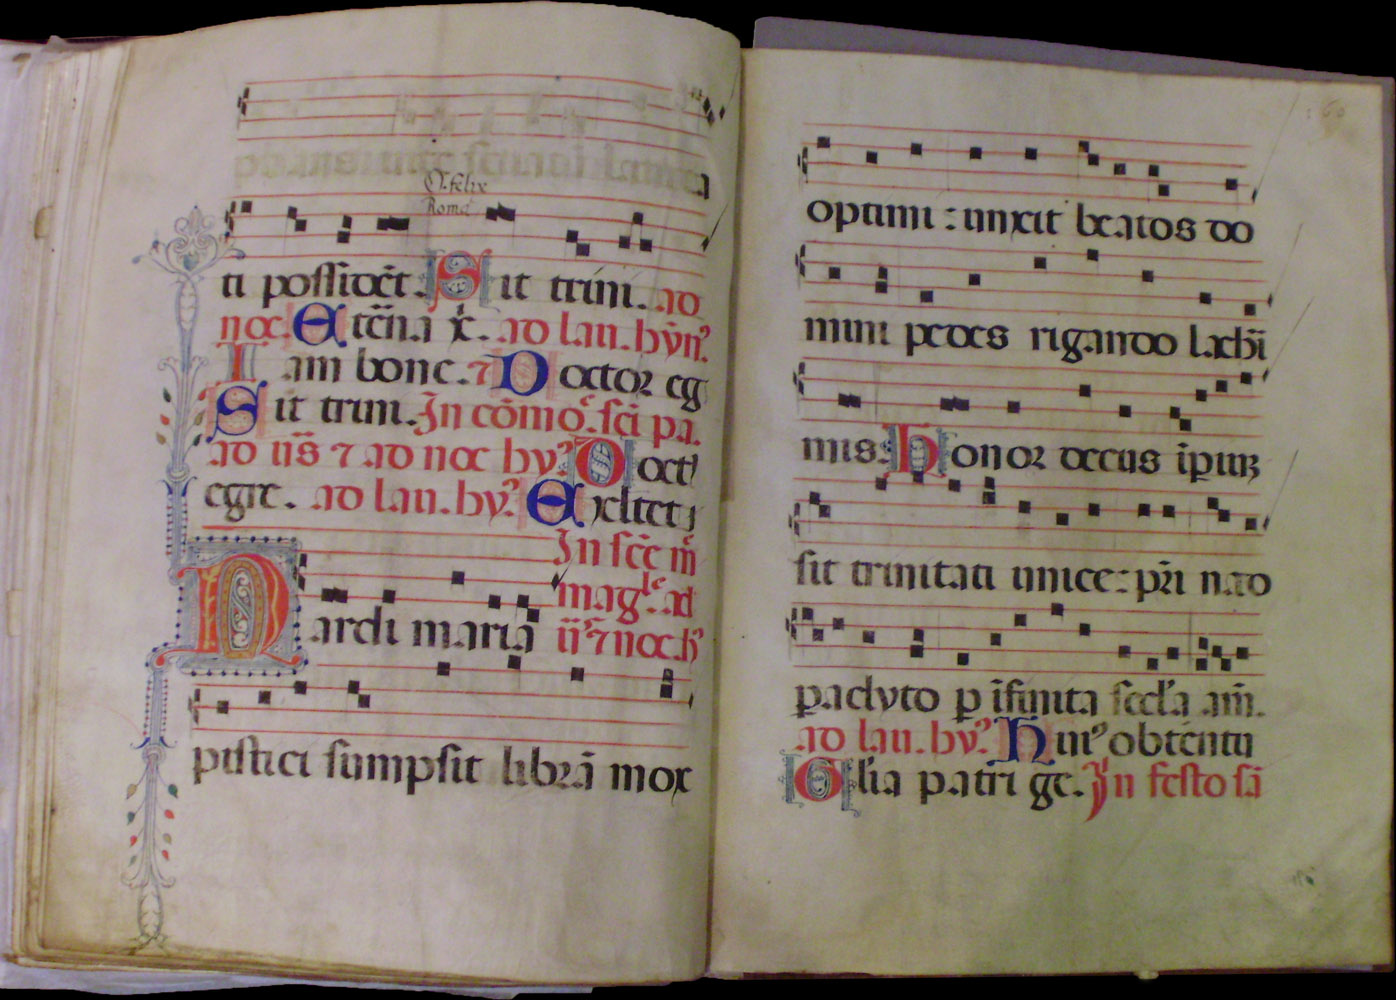 O felix
Roma
ti possidēt. Sit trini. ad
noc. Etēna x̄. ad lau. hȳn⁹.
Iam bone. ⁊ Doctor eg
Sit trini. In cōmo. sc̄i pa.
ad ū̄s ⁊ ad noc hy⁹. Doct
egre. ad lau. hy⁹. Exltet
In sc̄e m̄
mag. ad
Nardi mariā ū̄s ⁊ noc. h⁹
pistici sumpsit librā mox
60
optimi: unxit beatos do
mini pedes rigando lachī
mis. Honor decus īperiū
sit trinitati unice: pr̄i nato
paclyto p īfinita secl'a am̄.
ad lau. hy⁹. Hui⁹ obtētu
Gl'ia patri ge. In festo sā